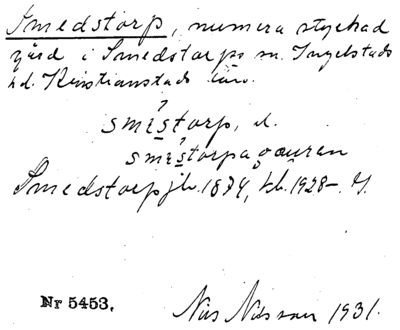 Smedstorp, numera styckad
gård i Smedstorps sn. Ingelstads
hd. Kristianstads län.
smɛstorp, el.
smɛstorpagɑuren
Smedstorp jb. 1874, kb. 1928–. J.
Nr 5453.
Nils Nilsson 1931.